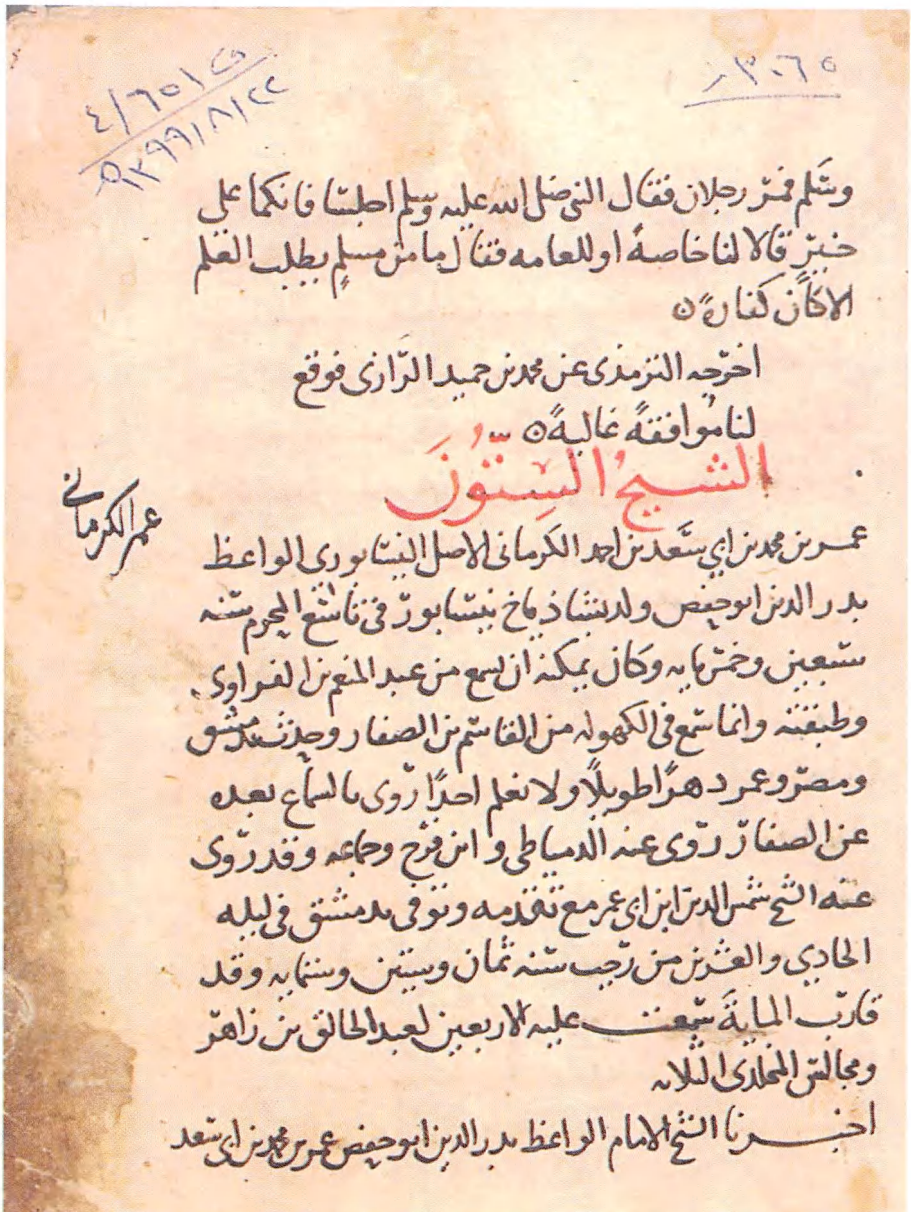 ٣٠٦٥
ف ٦٥١/٤
١٣٩٩/٨/٢٢ هـ
وسَلم فمرّ رجلان فقال النبي صلى الله عليه وسلم اجلسا فانكما على
خيرٍ قالا لنا خاصةً او للعامه فقال ما من مسلمٍ يطلب العلم
الا كان كفارةً ٥
اخرجه الترمذى عن محمد بن حميد الرّازى فوقع
لنا مُوافقةً عاليةً ٥
الشيخُ السِتّونَ
عمر الكرمانى
عمر بن محمد بن ابي سَعد بن احمد الكرمانى الاصل النيسابورى الواعظ
بدر الدين ابو حفص ولد بشاذياخ نيسابور فى تاسع المحرم سنه
سبعين وخمس مايه وكان يمكنه ان يسمع من عبد المنعم بن الفراوى
وطبقته وانما سَمع فى الكهوله من القاسم بن الصفار وحدث بدمشق
ومصر وعمر دهرًا طويلًا ولا نعلم احدًا روى بالسماع بعده
عن الصفار روى عنه الدمياطى و ابن فرح وجماعه وقد روى
عنه الشيخ شمس الدين ابن ابى عمر مع تقدمه وتوفى بدمشق فى ليله
الحادي والعشرين من رجب سنه ثمان وستين وستمايه وقد
قارب المايةَ سمعت عليه الاربعين لعبد الخالق بن زاهر
ومجالس المخلدى الثلاثه
اخبرنا الشيخ الامام الواعظ بدر الدين ابو حفص عمر بن محمد بن ابى سَعد